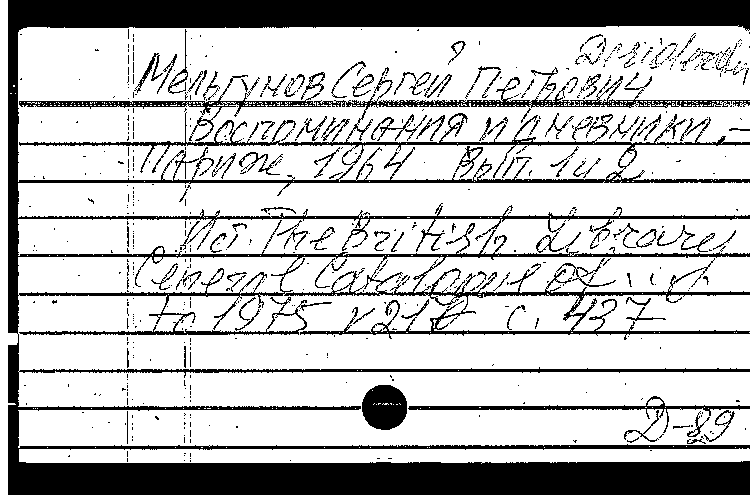 Desiderata
Мельгунов Сергей Петрович
Воспоминания и дневники. –
Париж, 1964 Вып. 1 и 2
Ист. The British Library
General Catalogue of
to 1975 v 217 с. 437
D-89